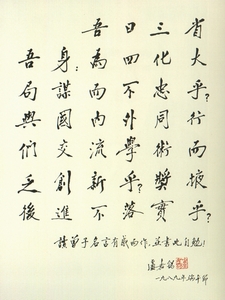 吾日三省
吾身：為四化大
局謀而不忠乎？
與國內外同行
們交流學術而
乏創新乎？獎掖
後進不落實乎？
讀曾子名言有感而作，並書此自勉！
盧嘉錫
一九八九年端午節